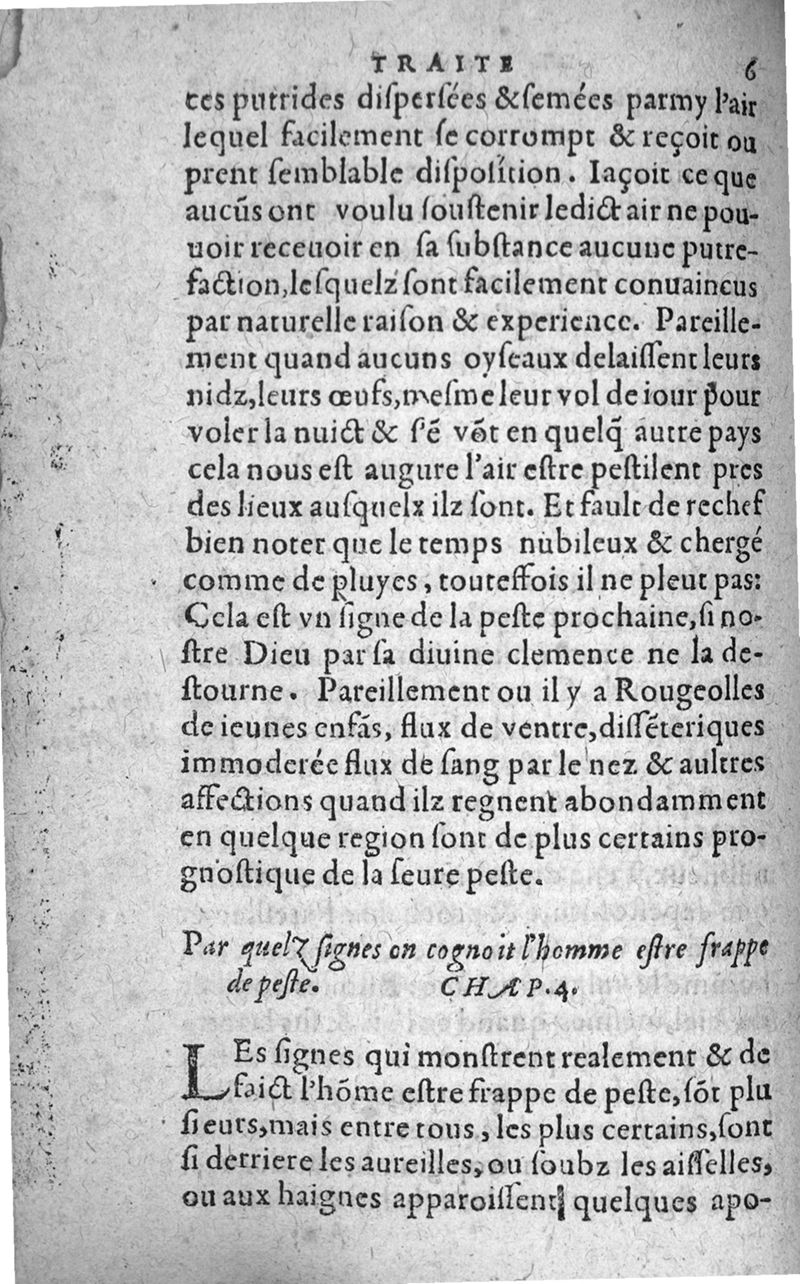 TRAITE 6
tes putrides diſperſées &ſemées parmy l'air
lequel facilement ſe corrompt & reçoit ou
prent ſemblable diſpoſition. Iaçoit ce que
aucũs ont voulu ſouſtenir ledict air ne pou-
uoir receuoir en ſa ſubſtance aucune putre-
faction,leſquelz ſont facilement conuaincus
par naturelle raiſon & experience. Pareille-
ment quand aucuns oyſeaux delaiſſent leurs
nidz,leurs œufs,meſme leur vol de iour pour
voler la nuict & ſ'ẽ võt en quelq̃ autre pays
cela nous eſt augure l'air eſtre peſtilent pres
des lieux auſquelx ilz ſont. Et fault de rechef
bien noter que le temps nubileux & chergé
comme de pluyes, touteffois il ne pleut pas:
Cela eſt vn ſigne de la peſte prochaine,ſi no-
ſtre Dieu par ſa diuine clemence ne la de-
ſtourne. Pareillement ou il y a Rougeolles
de ieunes enfãs, flux de ventre,diſſẽteriques
immoderée flux de ſang par le nez & aultres
affections quand ilz regnent abondamment
en quelque region ſont de plus certains pro-
gnoſtique de la ſeure peſte.
Par quelz ſignes on cognoit l'homme eſtre frappe
de peſte. CHAP.4.
LEs ſignes qui monſtrent realement & de
faict l'hõme eſtre frappe de peſte,ſõt plu
ſieurs,mais entre tous, les plus certains,ſont
ſi derriere les aureilles, ou ſoubz les aiſſelles,
ou aux haignes apparoiſſent quelques apo-